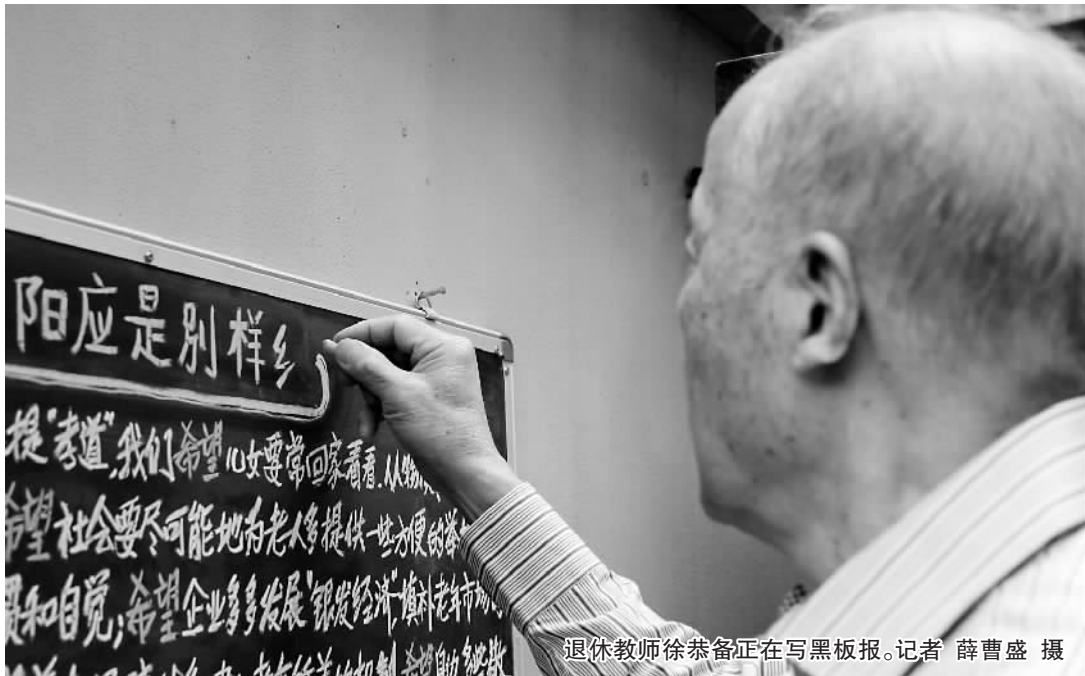 阳应是别样乡
提“孝道”,我们希望儿女要常回家看看.从物质
希望社会要尽可能地为老人多提供一些方便的举
和自觉;希望企业多多发展“银发经济”,填补老年市场的
退休教师徐恭备正在写黑板报。记者 薛曹盛 摄